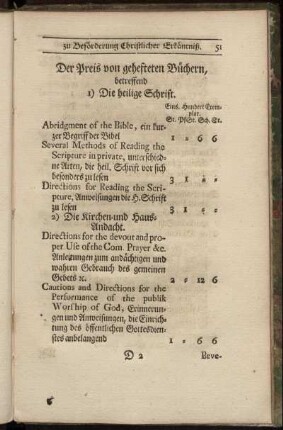 zu Beförderung Christlicher Erkäntniß. 51
Der Preis von gehefteten Büchern,
betreffend
1) Die heilige Schrift.
Eins. Hundert Exem-
plar.
St. Pf. St. Sch. St.
Abridgment of the Bible, ein kur-
zer Begriff der Bibel 1 " 6 6
Several Methods of Reading the
Scripture in private, unterschied-
ne Arten, die heil. Schrift vor sich
besonders zu lesen 3 1 " "
Directions for Reading the Scri-
pture, Anweisungen die H. Schrift
zu lesen 3 1 " "
2) Die Kirchen-und Haus-
Andacht.
Directions for the devout and pro-
per Use of the Com. Prayer &c.
Anleitungen zum andächtigen und
wahren Gebrauch des gemeinen
Gebets ꝛc. 2 " 12 6
Cautions and Directions for the
Performance of the publik
Worship of God, Erinnerun-
gen und Anweisungen, die Einrich-
tung des öffentlichen Gottesdien-
stes anbelangend 1 " 6 6
D 2 Beve-